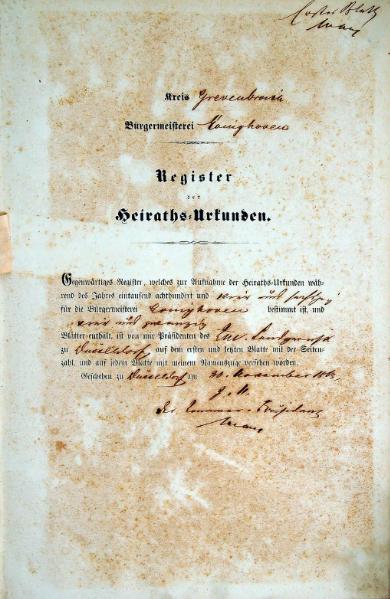 Erstes Blatt
Kreis Grevenbroich
Bürgermeisterei Königshoven
Register
der
Heiraths-Urkunden.
Gegenwärtiges Register, welches zur Aufnahme der Heiraths-Urkunden wäh-
rend des Jahres eintausend achthundert und vier und sechzig
für die Bürgermeisterei Königshoven bestimmt ist, und
vier und zwanzig
Blätter enthält, ist von mir Präsidenten des Landgerichts
zu Düsseldorf auf dem ersten und letzten Blatte mit der Seiten-
zahl, und auf jedem Blatte mit meinem Namenszuge versehen worden.
Geschehen zu Düsseldorf am November
Der Kammer-Präsident